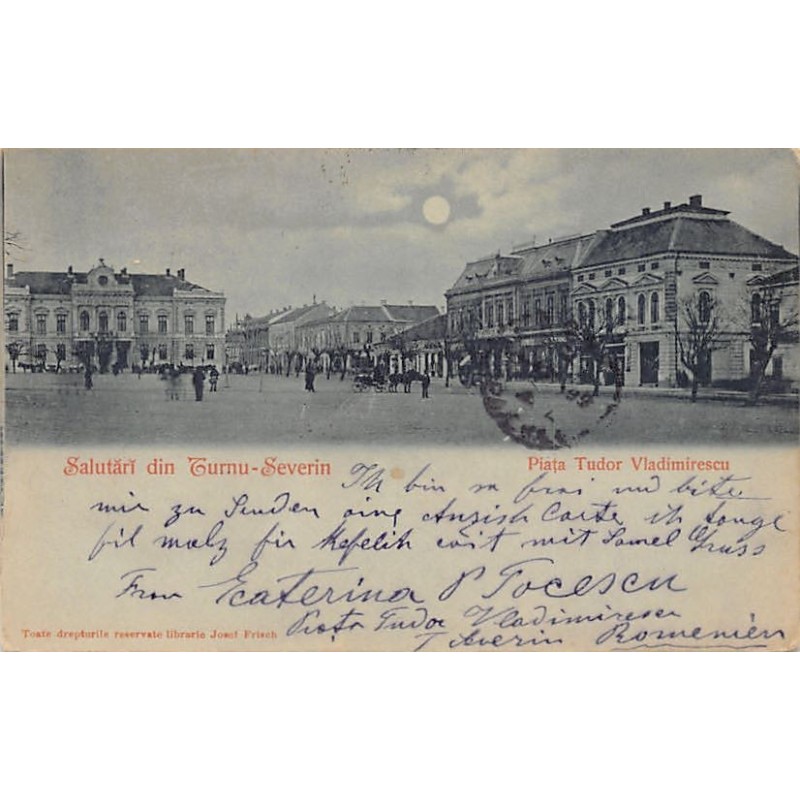 Salutări din Turnu-Severin
Piața Tudor Vladimirescu
Ih bin so frai und bite
mir zu Senden aine Ansish Carte ih
fil malz fir mit Gruss
Frau Ecaterina P Tocescu
Piața Tudor Vladimirescu
T Severin Romenien
Toate drepturile reservate librarie Josef Frisch